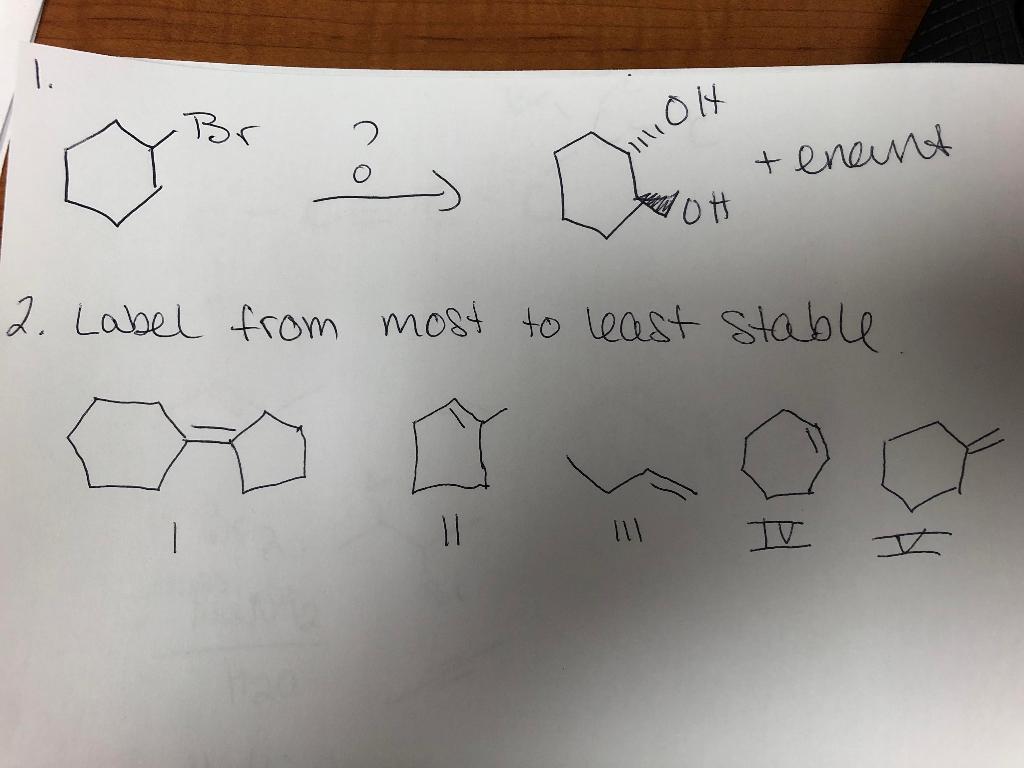 1.
Br
?
OH
OH
+ enant
2. Label from most to least stable.
I II III IV V